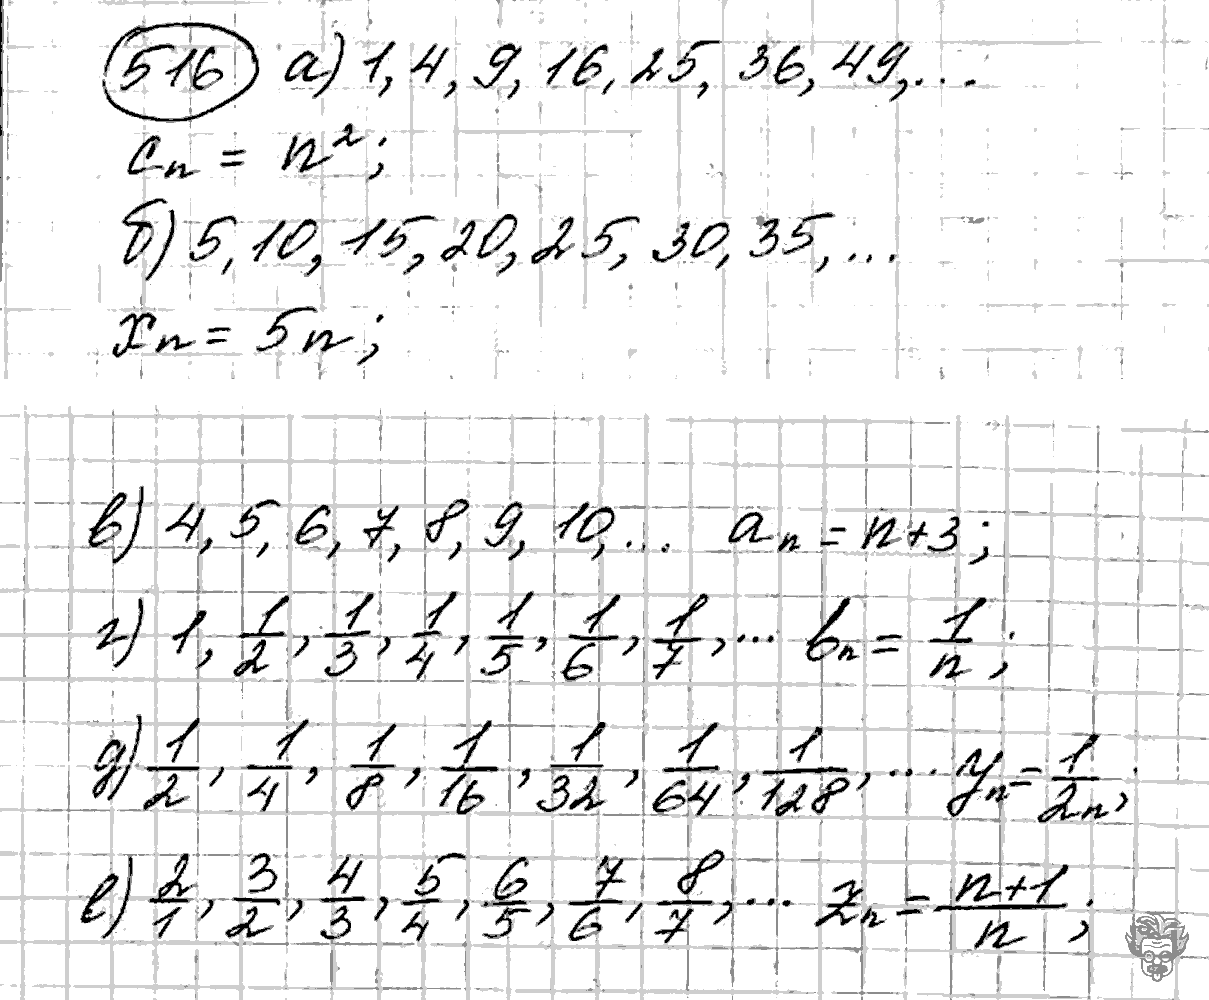 516 а) 1, 4, 9, 16, 25, 36, 49, ...
cₙ = n²;
б) 5, 10, 15, 20, 25, 30, 35, ...
xₙ = 5n;
в) 4, 5, 6, 7, 8, 9, 10, ... aₙ = n+3;
г) 1, 1/2, 1/3, 1/4, 1/5, 1/6, 1/7, ... bₙ = 1/n;
д) 1/2, 1/4, 1/8, 1/16, 1/32, 1/64, 1/128, ... yₙ = 1/2n;
е) 2/1, 3/2, 4/3, 5/4, 6/5, 7/6, 8/7, ... zₙ = n+1/n;